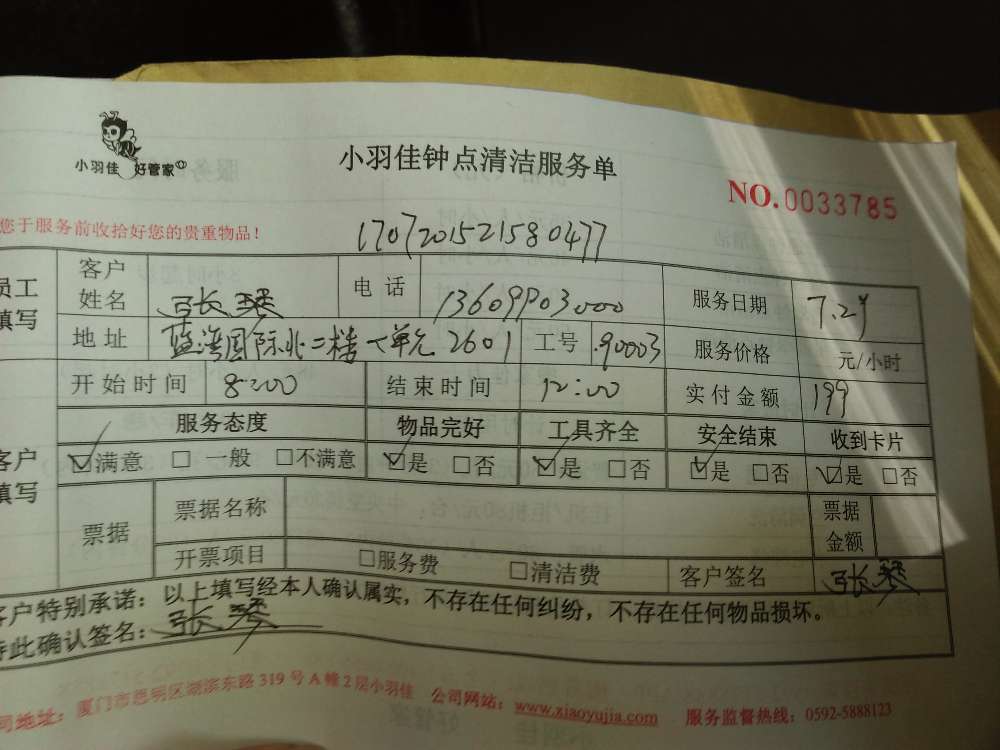 小羽佳 好管家
小羽佳钟点清洁服务单
NO.0033785
您于服务前收拾好您的贵重物品!
1707201521580477
员工填写 客户姓名 张琴 电话 服务日期 7.29
地址 蓝湾国际北二楼一单元2601 工号 90003 服务价格 元/小时
开始时间 8:00 结束时间 12:00 实付金额 199
服务态度 物品完好 工具齐全 安全结束 收到卡片
客户填写 ☑满意 □一般 □不满意 ☑是 □否 ☑是 □否 ☑是 □否 ☑是 □否
票据 票据名称 票据金额
开票项目 □服务费 □清洁费 客户签名 张琴
客户特别承诺：以上填写经本人确认属实，不存在任何纠纷，不存在任何物品损坏。
特此确认签名：张琴
司地址：厦门市思明区湖滨东路319号A幢2层小羽佳 公司网站：www.xiaoyujia.com 服务监督热线：0592-5888123